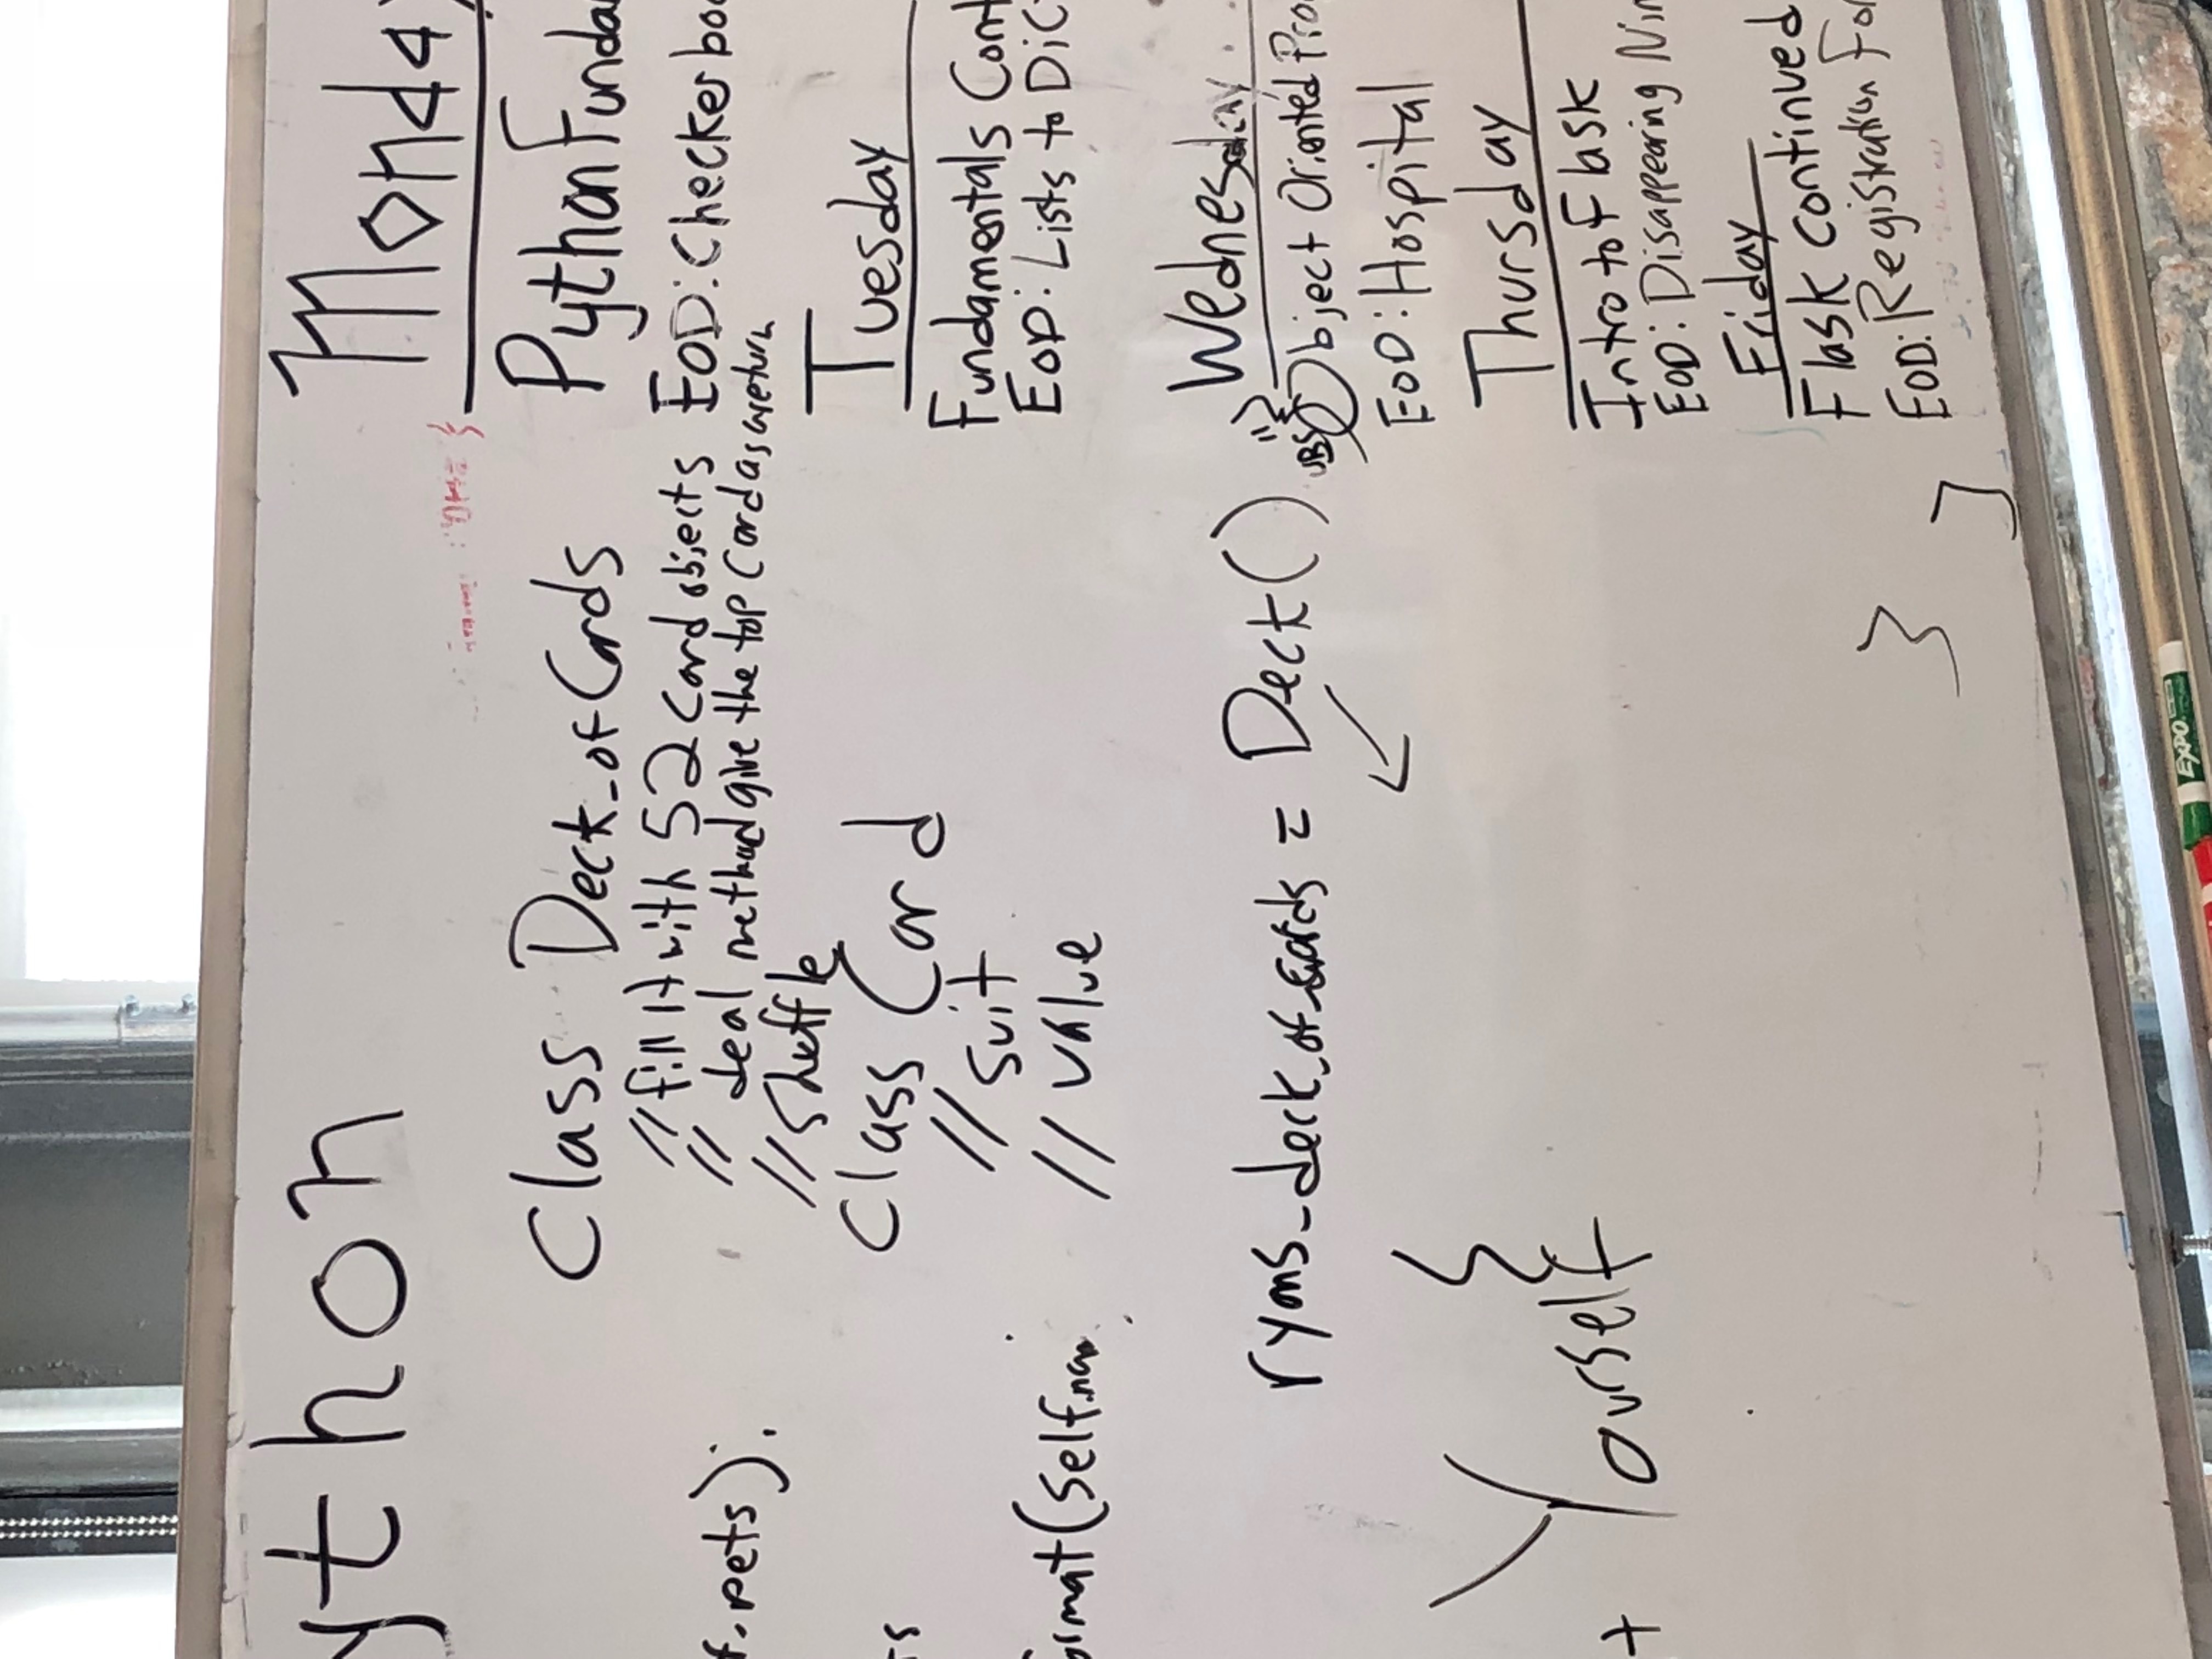 ython
f.pets):
ts
ormat(self.nam
+ Yourself
Class Deck_of Cards
// fill it with 52 card objects
// deal method give the top card as a return
// Shuffle
Class Card
// suit
// value
ryans_deck_of_cards = Deck()
{
}
]
Monday
Python Funda
EOD: Checker boa
Tuesday
Fundamentals Cont
EOD: Lists to Dic
Wednesday
Object Oriented Pro
EOD: Hospital
Thursday
Intro to Flask
EOD: Disappearing Nin
Friday
Flask continued
EOD: Registration For
EXPO